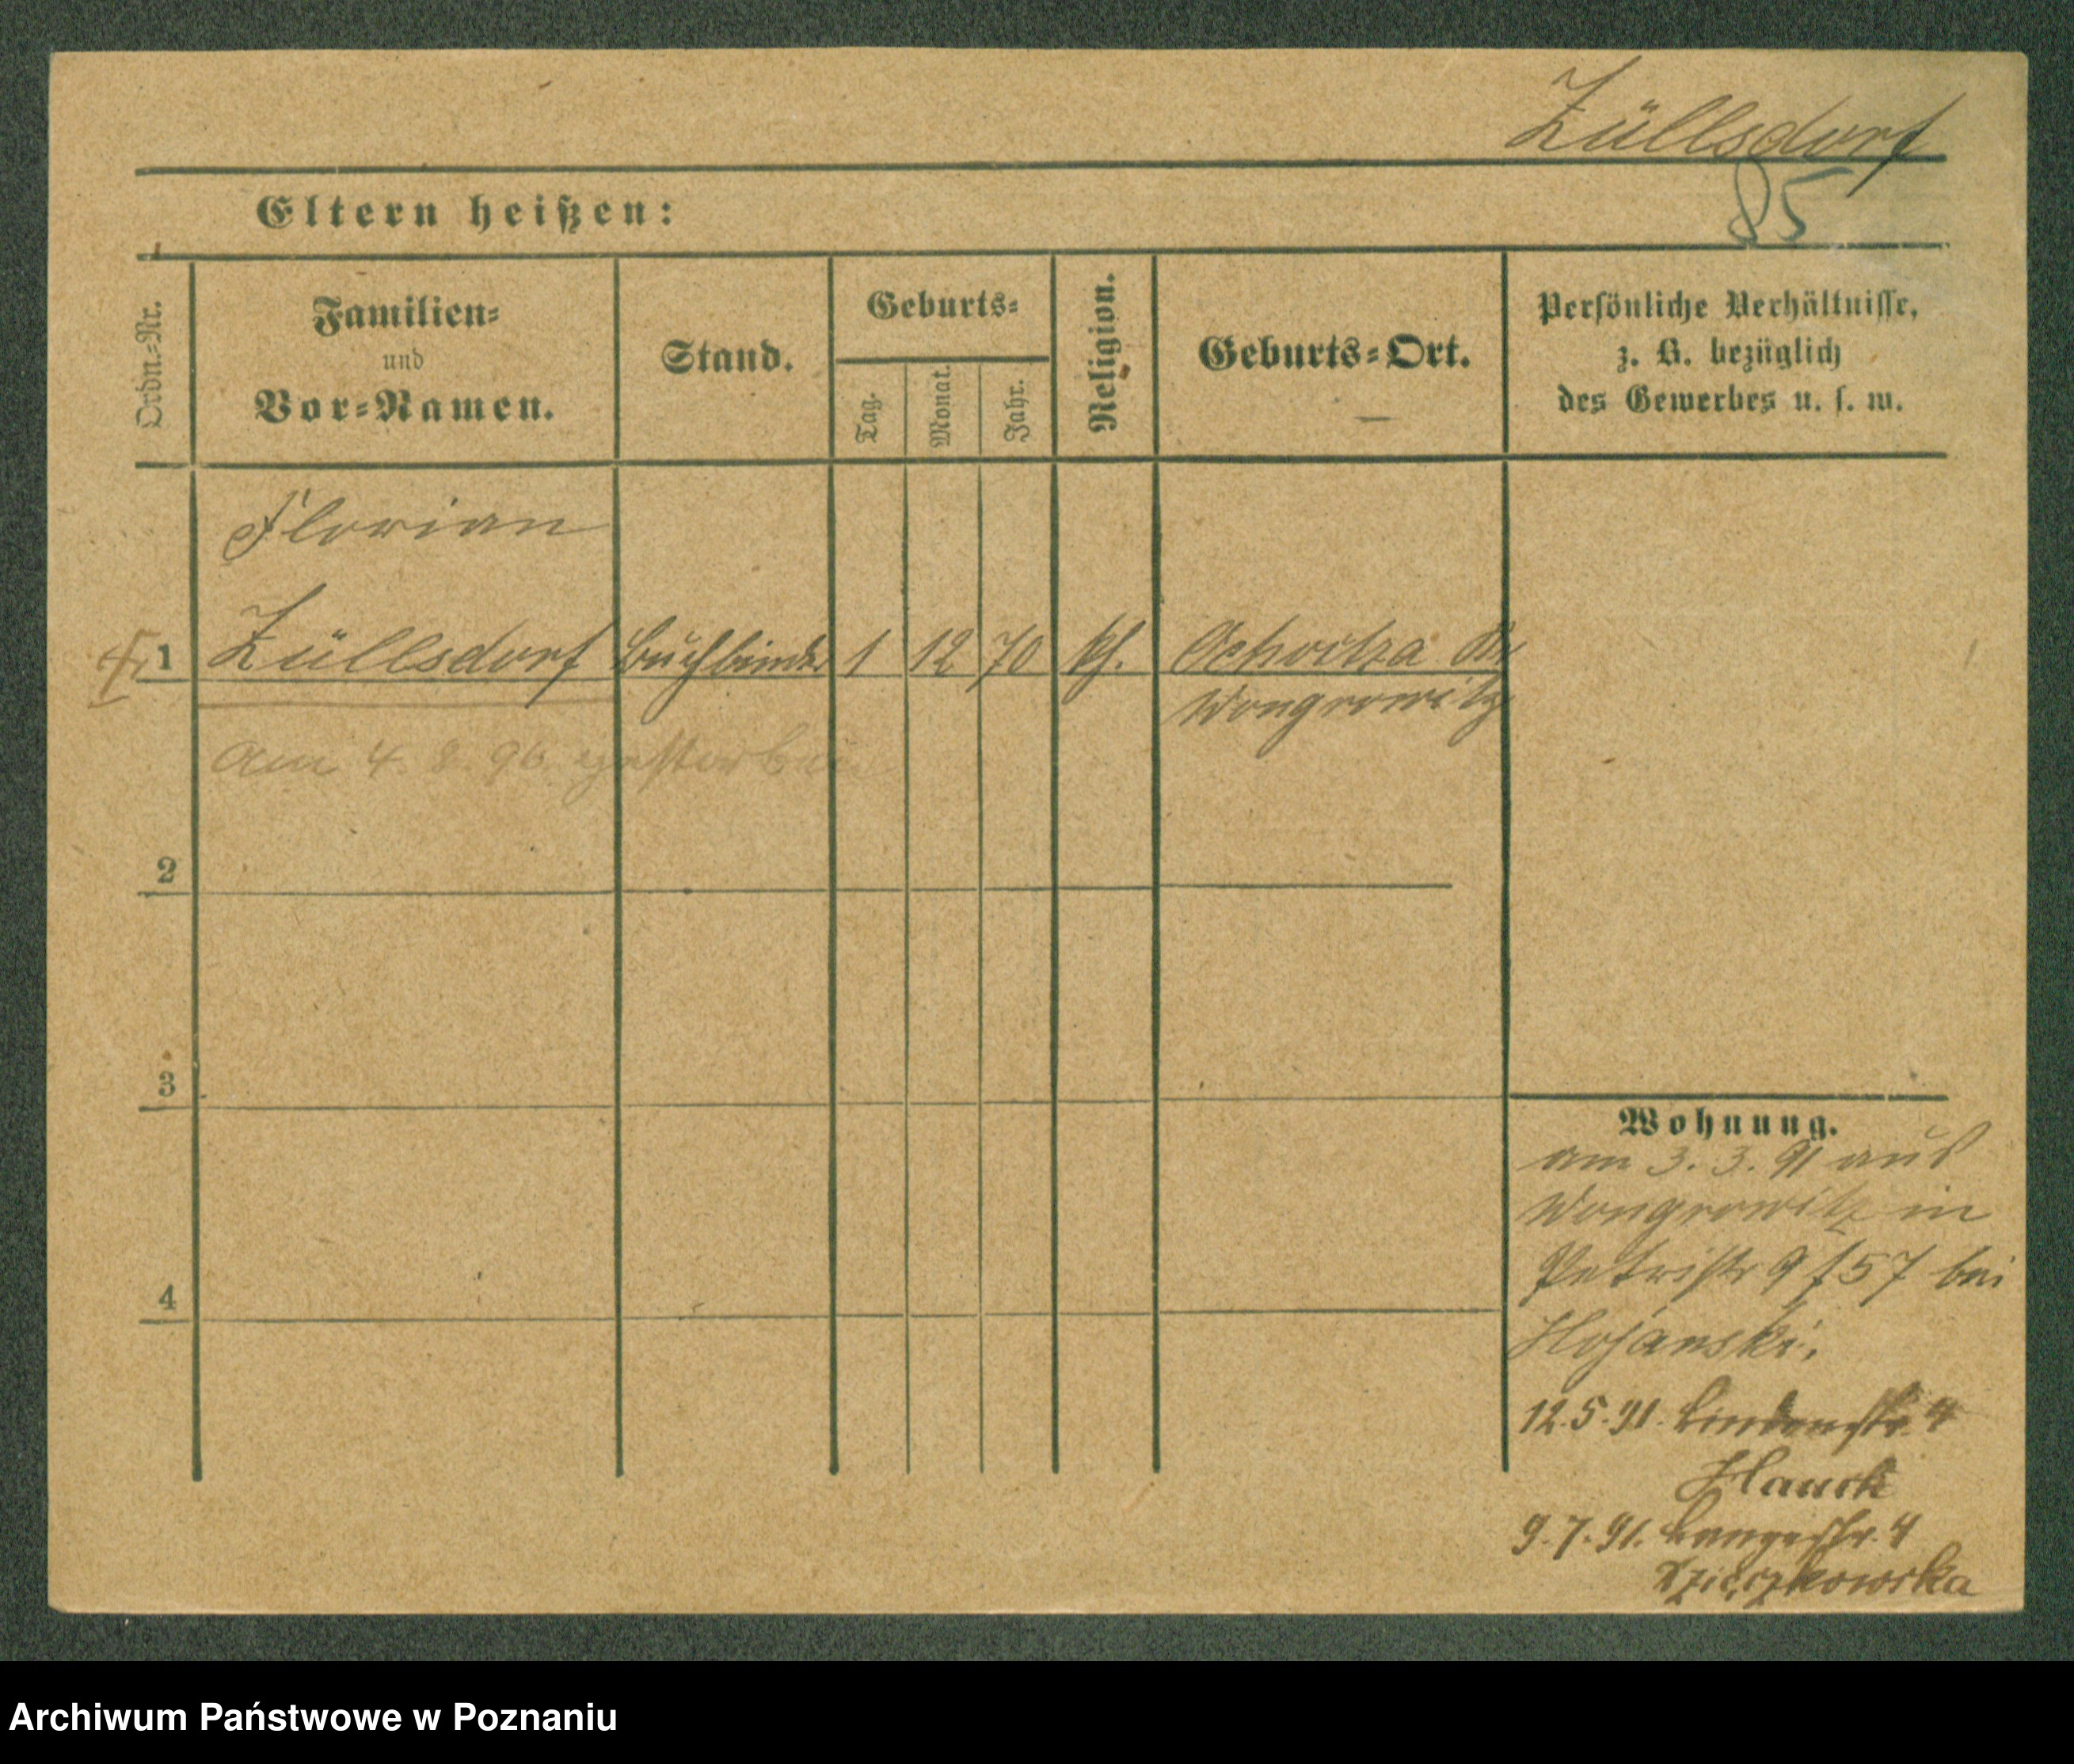 Züllsdorf
85
Eltern heißen:
Ordn.-Nr.
Familien-
und
Vor-Namen.
Stand.
Geburts-
Tag.
Monat.
Jahr.
Religion.
Geburts-Ort.
Persönliche Verhältnisse,
z. B. bezüglich
des Gewerbes u. s. w.
Florian
1 Züllsdorf Buchbinder 1 12 70 kh.
Wongrowitz
am 4. 8. 96 gestorben
2
3
4
Wohnung.
am 3. 3. 91 aus
Wongrowitz in
Petristr 9 f 57 bei
Hojanski.
12.5.91. Lindenstr. 4
Hauck
9.7.91. Langestr. 4
Archiwum Państwowe w Poznaniu